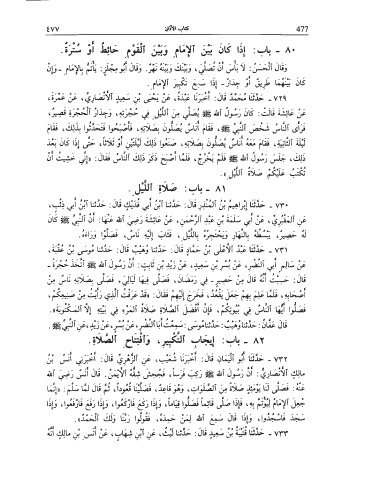 ٤٧٧ كتاب الأذان 477
٨٠ - باب: إِذَا كَانَ بَيْنَ الْإِمَامِ وَبَيْنَ الْقَوْمِ حَائِطٌ أَوْ سُتْرَةٌ.
وَقَالَ الْحَسَنُ: لَا بَأْسَ أَنْ تُصَلِّيَ، وَبَيْنَكَ وَبَيْنَهُ نَهْرٌ. وَقَالَ أَبُو مِجْلَزٍ: يَأْتَمُّ بِالْإِمَامِ - وَإِنْ
كَانَ بَيْنَهُمَا طَرِيقٌ أَوْ جِدَارٌ - إِذَا سَمِعَ تَكْبِيرَ الْإِمَامِ.
٧٢٩ - حَدَّثَنَا مُحَمَّدٌ قَالَ: أَخْبَرَنَا عَبْدَةُ، عَنْ يَحْيَى بْنِ سَعِيدٍ الْأَنْصَارِيِّ، عَنْ عَمْرَةَ،
عَنْ عَائِشَةَ قَالَتْ: كَانَ رَسُولُ اللهِ ﷺ يُصَلِّي مِنَ اللَّيْلِ فِي حُجْرَتِهِ، وَجِدَارُ الْحُجْرَةِ قَصِيرٌ،
فَرَأَى النَّاسُ شَخْصَ النَّبِيِّ ﷺ، فَقَامَ أُنَاسٌ يُصَلُّونَ بِصَلَاتِهِ، فَأَصْبَحُوا فَتَحَدَّثُوا بِذَلِكَ، فَقَامَ
لَيْلَةَ الثَّانِيَةِ، فَقَامَ مَعَهُ أُنَاسٌ يُصَلُّونَ بِصَلَاتِهِ. صَنَعُوا ذَلِكَ لَيْلَتَيْنِ أَوْ ثَلَاثًا، حَتَّى إِذَا كَانَ بَعْدَ
ذَلِكَ، جَلَسَ رَسُولُ اللهِ ﷺ فَلَمْ يَخْرُجْ، فَلَمَّا أَصْبَحَ ذَكَرَ ذَلِكَ النَّاسُ فَقَالَ: «إِنِّي خَشِيتُ أَنْ
تُكْتَبَ عَلَيْكُمْ صَلَاةُ اللَّيْلِ».
٨١ - باب: صَلَاةِ اللَّيْلِ.
٧٣٠ - حَدَّثَنَا إِبْرَاهِيمُ بْنُ الْمُنْذِرِ قَالَ: حَدَّثَنَا ابْنُ أَبِي فُدَيْكٍ قَالَ: حَدَّثَنَا ابْنُ أَبِي ذِئْبٍ،
عَنِ الْمَقْبُرِيِّ، عَنْ أَبِي سَلَمَةَ بْنِ عَبْدِ الرَّحْمَنِ، عَنْ عَائِشَةَ رَضِيَ اللهُ عَنْهَا: أَنَّ النَّبِيَّ ﷺ كَانَ
لَهُ حَصِيرٌ، يَبْسُطُهُ بِالنَّهَارِ وَيَحْتَجِرُهُ بِاللَّيْلِ، فَثَابَ إِلَيْهِ نَاسٌ، فَصَلَّوْا وَرَاءَهُ.
٧٣١ - حَدَّثَنَا عَبْدُ الْأَعْلَى بْنُ حَمَّادٍ قَالَ: حَدَّثَنَا وُهَيْبٌ قَالَ: حَدَّثَنَا مُوسَى بْنُ عُقْبَةَ،
عَنْ سَالِمٍ أَبِي النَّضْرِ، عَنْ بُسْرِ بْنِ سَعِيدٍ، عَنْ زَيْدِ بْنِ ثَابِتٍ: أَنَّ رَسُولَ اللهِ ﷺ اتَّخَذَ حُجْرَةً -
قَالَ: حَسِبْتُ أَنَّهُ قَالَ مِنْ حَصِيرٍ - فِي رَمَضَانَ، فَصَلَّى فِيهَا لَيَالِيَ، فَصَلَّى بِصَلَاتِهِ نَاسٌ مِنْ
أَصْحَابِهِ، فَلَمَّا عَلِمَ بِهِمْ جَعَلَ يَقْعُدُ، فَخَرَجَ إِلَيْهِمْ فَقَالَ: «قَدْ عَرَفْتُ الَّذِي رَأَيْتُ مِنْ صَنِيعِكُمْ،
فَصَلُّوا أَيُّهَا النَّاسُ فِي بُيُوتِكُمْ، فَإِنَّ أَفْضَلَ الصَّلَاةِ صَلَاةُ الْمَرْءِ فِي بَيْتِهِ إِلَّا الْمَكْتُوبَةَ».
قَالَ عَفَّانُ: حَدَّثَنَا وُهَيْبٌ: حَدَّثَنَا مُوسَى: سَمِعْتُ أَبَا النَّضْرِ، عَنْ بُسْرٍ، عَنْ زَيْدٍ، عَنِ النَّبِيِّ ﷺ.
٨٢ - باب: إِيجَابِ التَّكْبِيرِ، وَافْتِتَاحِ الصَّلَاةِ.
٧٣٢ - حَدَّثَنَا أَبُو الْيَمَانِ قَالَ: أَخْبَرَنَا شُعَيْبٌ، عَنِ الزُّهْرِيِّ قَالَ: أَخْبَرَنِي أَنَسُ بْنُ
مَالِكٍ الْأَنْصَارِيُّ: أَنَّ رَسُولَ اللهِ ﷺ رَكِبَ فَرَسًا، فَجُحِشَ شِقُّهُ الْأَيْمَنُ. قَالَ أَنَسٌ رَضِيَ اللهُ
عَنْهُ: فَصَلَّى لَنَا يَوْمَئِذٍ صَلَاةً مِنَ الصَّلَوَاتِ، وَهُوَ قَاعِدٌ، فَصَلَّيْنَا قُعُودًا، ثُمَّ قَالَ لَمَّا سَلَّمَ: «إِنَّمَا
جُعِلَ الْإِمَامُ لِيُؤْتَمَّ بِهِ، فَإِذَا صَلَّى قَائِمًا فَصَلُّوا قِيَامًا، وَإِذَا رَكَعَ فَارْكَعُوا، وَإِذَا رَفَعَ فَارْفَعُوا، وَإِذَا
سَجَدَ فَاسْجُدُوا، وَإِذَا قَالَ سَمِعَ اللهُ لِمَنْ حَمِدَهُ، فَقُولُوا رَبَّنَا وَلَكَ الْحَمْدُ».
٧٣٣ - حَدَّثَنَا قُتَيْبَةُ بْنُ سَعِيدٍ قَالَ: حَدَّثَنَا لَيْثٌ، عَنِ ابْنِ شِهَابٍ، عَنْ أَنَسِ بْنِ مَالِكٍ أَنَّهُ